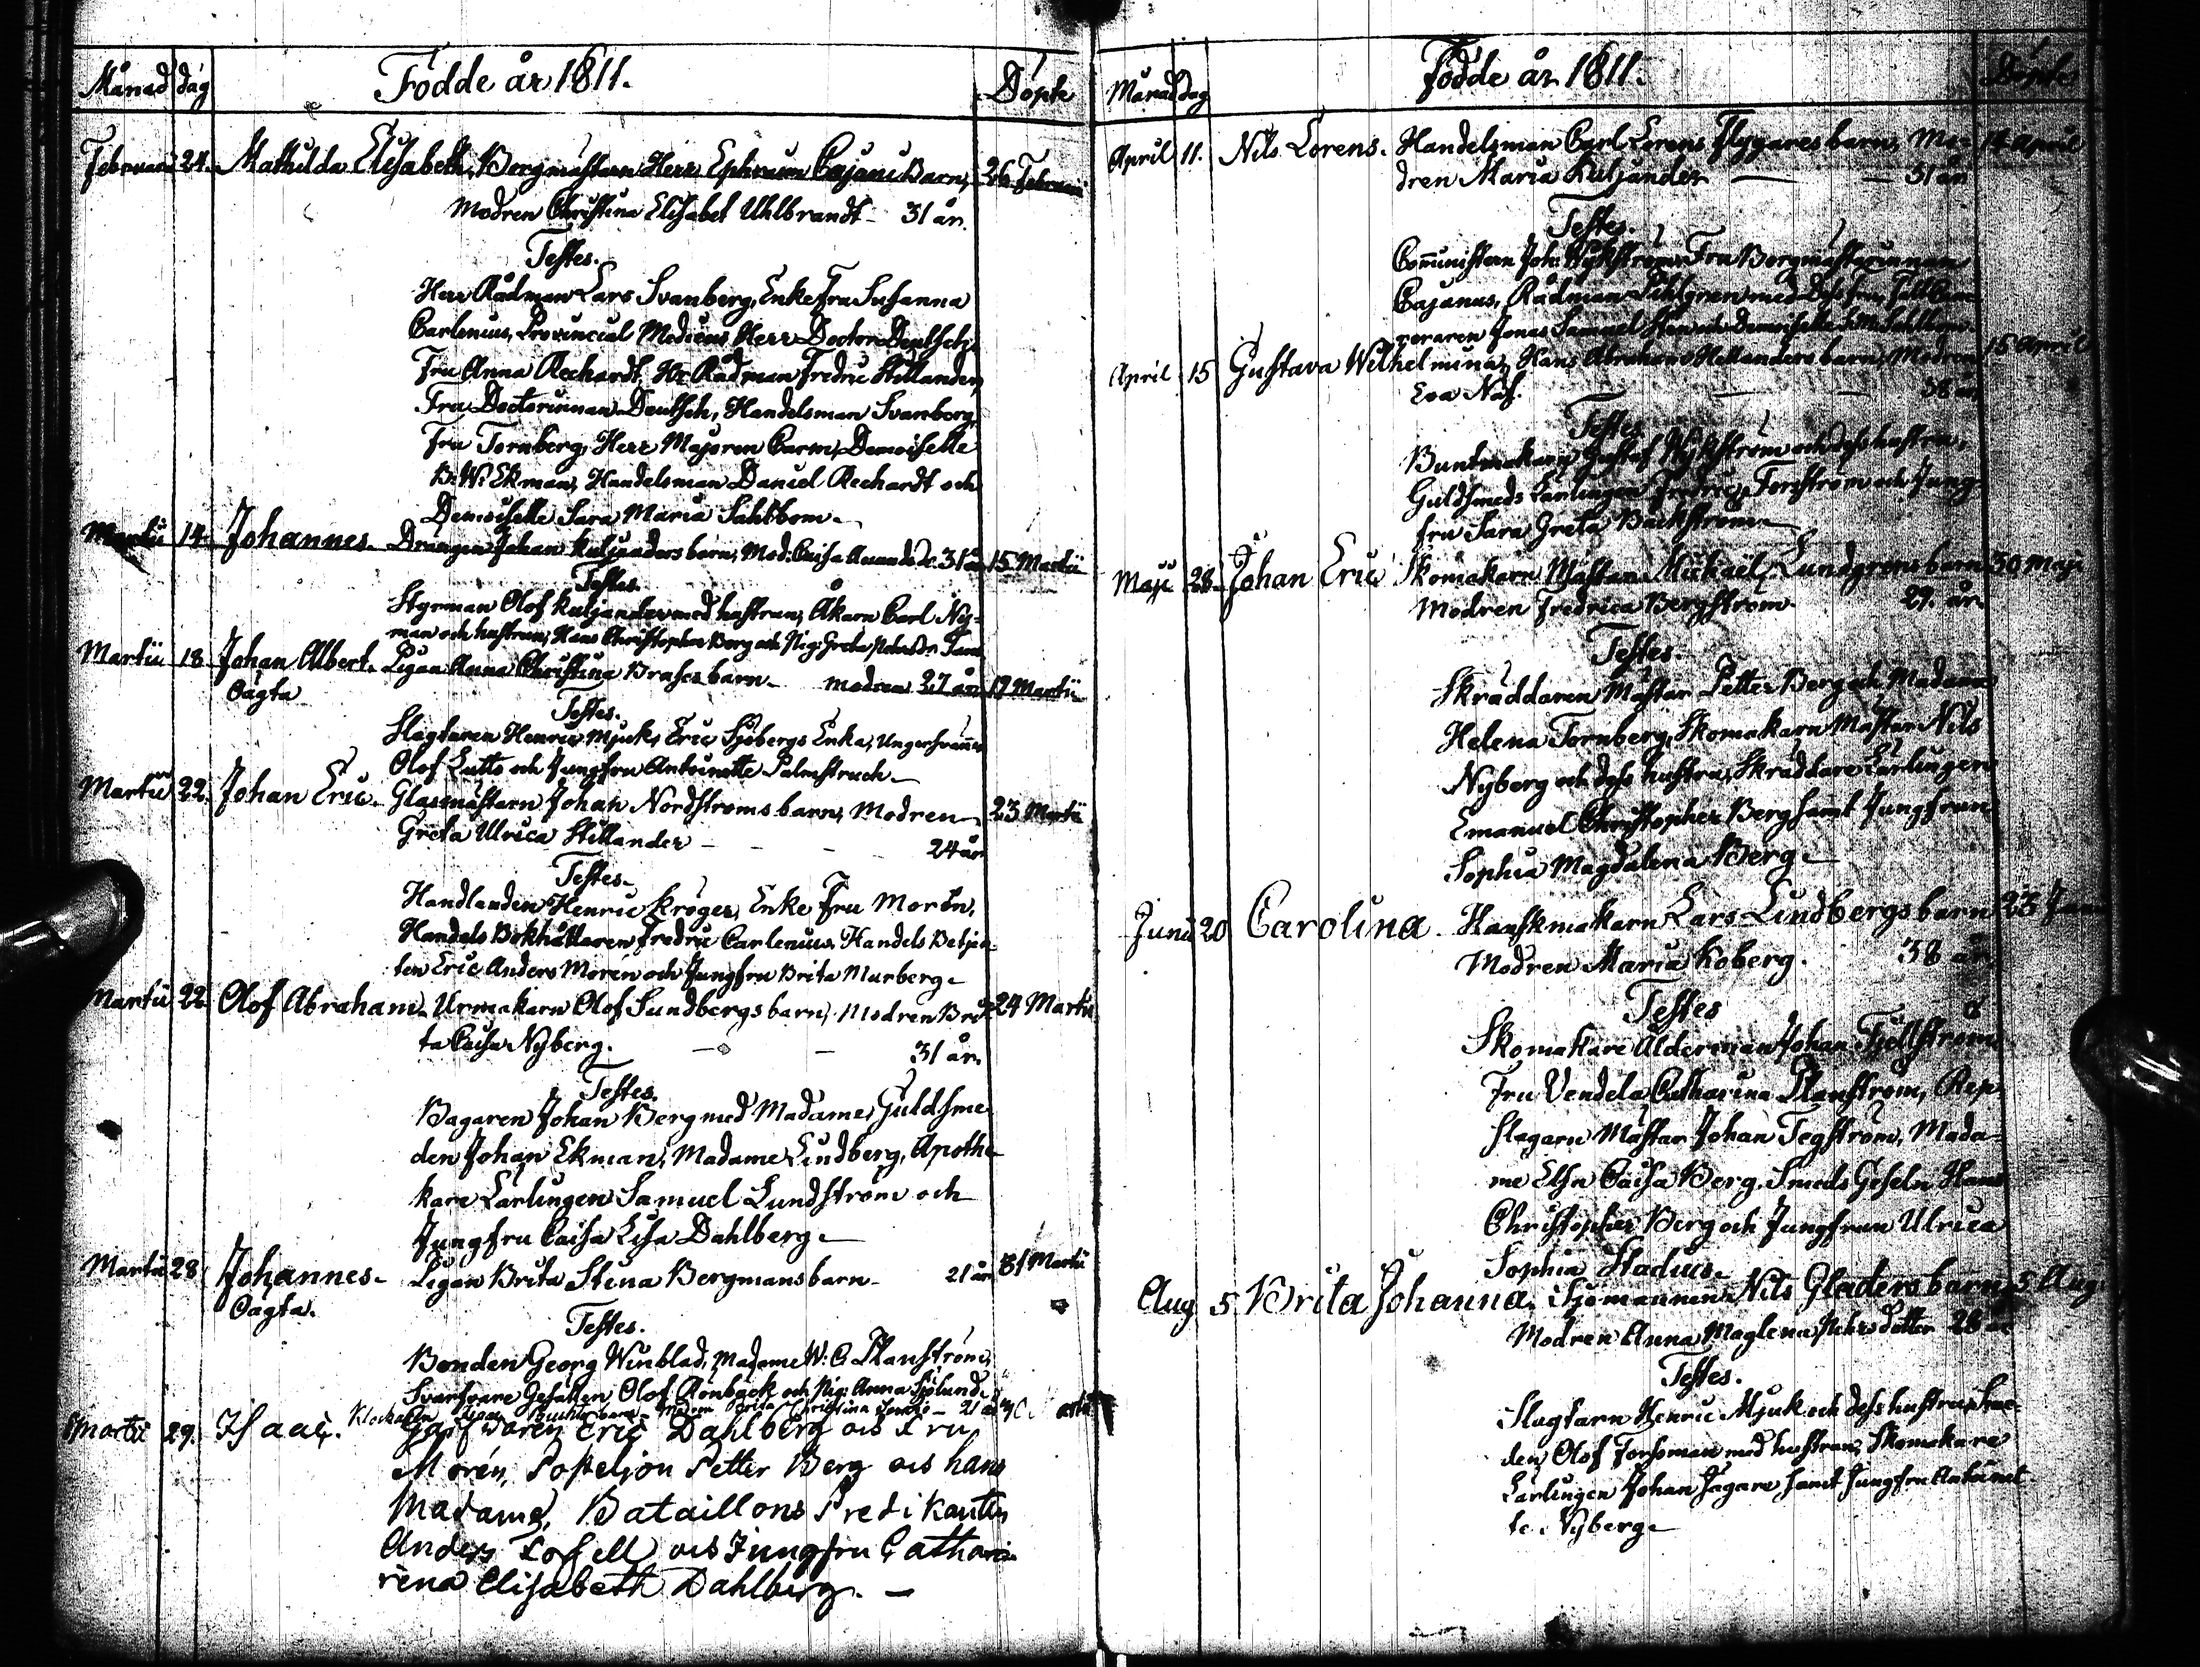 Månad dag Födde år 1811. Döpte
Februari 24. Mathilda Elisabeth, Bergmästarn Herr Ephraim Cajani Barn, 26 Februari
Modren Christina Elisabet Uhlbrandt - 31 år.
Testes.
Herr Rådman Lars Svanberg, Enke Fru Susanna
Carlenius, Provincial Medicus Herr Doctor Deutsch,
Fru Anna Rechardt, Hr Rådman Fredric Stillander,
Fru Doctorinnan Deutsch, Handelsman Svanberg,
Fru Tornberg, Herr Majoren Carm, Demoiselle
B. W. Ekman, Handelsman Daniel Rechardt och
Demoiselle Sara Maria Sahlbom.
Martii 14. Johannes. Drängen Johan Kuljanders barn, Mod. Caisa Amands dr. 31 år 15 Martii
Testes.
Styrman Olof Kuljander med hustrun, Åkarn Carl Ny-
man och hustrun, Hans Christopher Berg och Pig: Greta
Martii 18 Johan Albert. Pigan Anna Christina Brases barn. modren 27 år 19 Martii
Oägta
Testes.
Slagtaren Henric Mjuk, Eric Sjöbergs Enka, Ungersvännen
Olof Lutto och Jungfru Antoinette Palmstruch
Martii 22. Johan Eric. Glasmästarn Johan Nordströms barn, Modren 23 Martii
Greta Ulrica Stillander - - - 24 år
Testes.
Handlanden Henric Kröger, Enke Fru Morén,
Handels Bokhållaren Fredric Carlenius, Handels Betjen-
ten Eric Anders Morén och Jungfru Brita Murberg.
Martii 22. Olof Abraham. Urmakarn Olof Sundbergs barn, Modren Bri- 24 Martii
ta Caisa Nyberg. - - 31 år.
Testes.
Bagaren Johan Berg med Madame, Guldsme
den Johan Ekman, Madame Lindberg, Apothe-
kare Lärlingen Samuel Lundström och
Jungfru Caisa Lisa Dahlberg.
Martii 28 Johannes. Pigan Brita Stina Bergmans barn. 21 år 31 Martii
Oägta.
Testes.
Bonden Georg Winblad, Madame W: C. Planström,
Svarfvare Gesällen Olof Rönback och Pig: Anna Sjölund.
Martii 29. Isaac. Klockaren barn - Modren Brita Christina - 21 år
Garfwaren Eric Dahlberg ocs Fru
Morén, Posteljon Petter Berg ocs hans
Madame, Bataillons Predikanten
Anders Toffell ocs Jungfru Catha-
rina Elisabeth Dahlberg. -
Månad dag Födde år 1811. Döpte
April 11. Nils Lorens. Handelsman Carl Lorens Flygares barn, Mo- 14 April
dren Maria Kuljander - - 31 år
Testes.
Comministern Joh: Wykström, Fru Bergmästarinnan
Cajanus, Rådman Pihlgren med dess fru,
Jonas Samuel och Demoiselle S. M. Sahlbom.
April 15 Gustava Wilhelmina, Hans Abraham Hellanders barn, Modren 15 April
Eva Näs. - - 38 år
Testes
Buntmakarn Gustaf Wykström och dess hustru,
Guldsmeds Lärlingen Fredric Forsström och Jung-
fru Sara Greta Bäckström
Maji 28 Johan Eric Skomakarn Mästarn Mickaël Lundgrens barn 30 Maji
Modren Fredrica Bergström. 29. år.
Testes.
Skräddaren Mästar Petter Berg och Madame
Helena Tornberg, Skomakarn Mästar Nils
Nyberg och dess hustru, Skräddare Lärlingen
Emanuel Christopher Berg samt Jungfrun
Sophia Magdalena Berg.
Junii 20 Carolina. Handskmakarn Lars Lindbergs barn 23 Junii
Modren Maria Koberg. 38 år
Testes
Skomakare Ålderman Johan Fjellström
Fru Vendela Catharina Planström, Rep-
slagarn Mästar Johan Tegström, Mada-
me Elsa Caisa Berg, Smeds Geseln Hans
Christopher Berg och Jungfrun Ulrica
Sophia Stadius.
Aug 5 Brita Johanna. Sjömannen Nils Gladers barn 5 Aug:
Modren Anna Maglena dotter 28 år
Testes.
Slagtarn Henric Mjuk och dess hustru, Sme-
den Olof Forssman med hustrun, Skomakare
Lärlingen Johan Jägare, samt Jungfru Antoinet-
te Nyberg